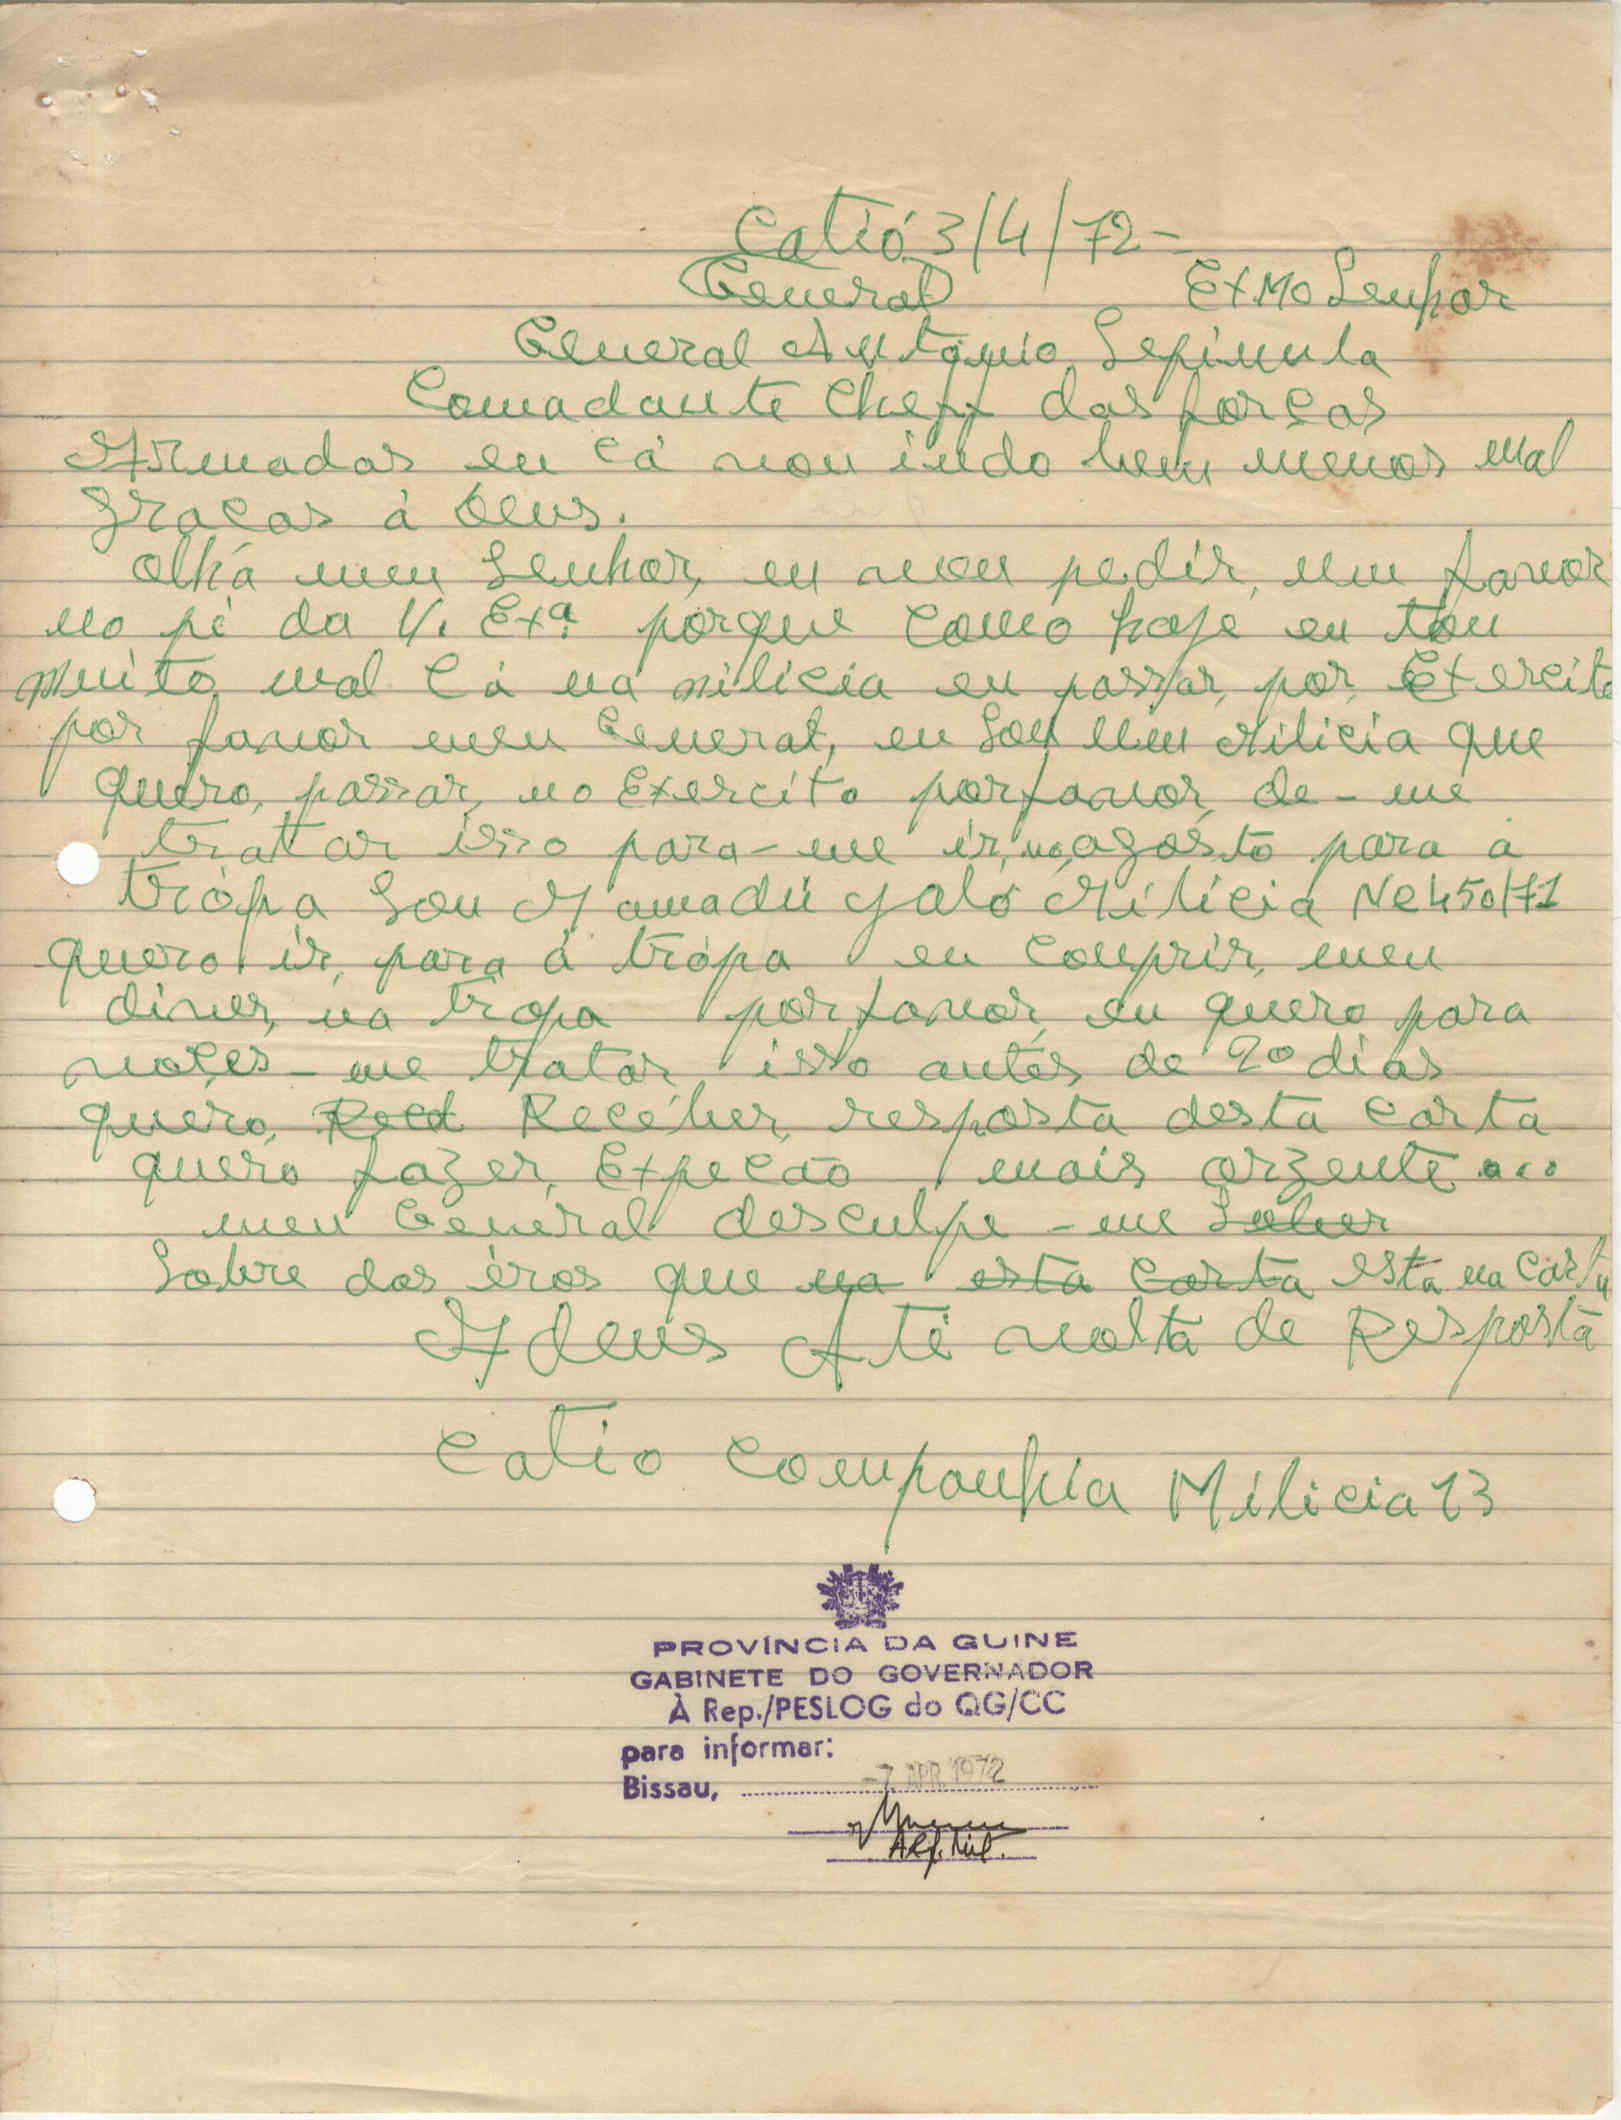 Catió 3/4/72-
General Exmo Senhor
General António Sepinula
Comadante Cheff das forças
Armadas eu cá vou indo bem menos mal
graças á Deus.
olhá meu Senhor, eu vou pedir, um favor
no pé da V. Exª porque como hoje eu tou
muito mal cá na milicia eu passar, por Exercito
por favor meu General, eu sou um Milicia que
quero, passar, no Exercito porfavor, de-me
tratar isso para-me ir, no, agósto para a
trópa Sou Mamadú Jaló Milicia Nº 450/71
quero ir, para á trópa eu comprir, meu
diver, na trópa porfavor, eu quero para
voçes-me tratar isso antés de 20 dias
quero, Recd Recéber, resposta desta carta
quero fazer, Expecão mais orzente
meu General desculpe-me Sober
Sobre dos éros que na esta carta está na carta
Adeus Até volta de Resposta
Catio Companhia Milicia 13
PROVÍNCIA DA GUINE
GABINETE DO GOVERNADOR
À Rep./PESLOG do QG/CC
para informar:
Bissau, -7. APR. 1972
Alf. Mil.